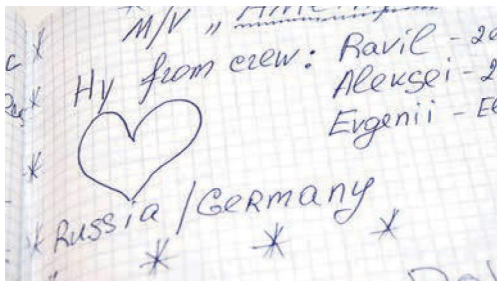 M/V „
Hy from crew: Ravil -
Aleksei - 2
Evgenii -
Russia / Germany